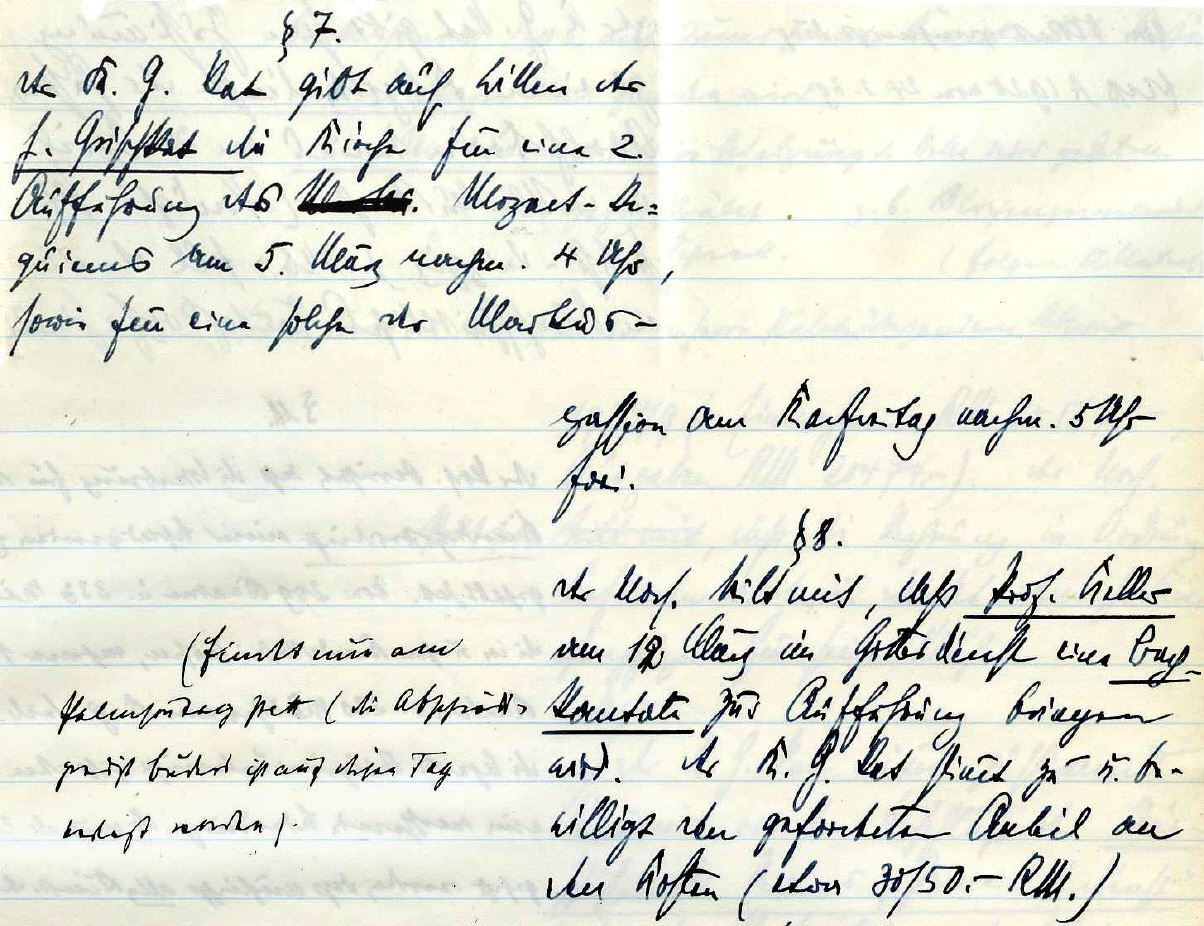 § 7.
Der K. G. Rat gibt auf Bitten der
H. Grischkat die Kirche für eine 2.
Aufführung des Mozart-Re=
quiems am 5. März nachm. 4 Uhr,
sowie für eine solche der Markus-
passion am Karfreitag nachm. 5 Uhr
frei.
§ 8.
Der Vors. teilt mit, daß Prof. Keller
am 12. März im Gottesdienst eine Bach-
kantate zur Aufführung bringen
wird. Der K. G. Rat stimmt zu u. be-
willigt den geforderten Anteil an
den Kosten (etwa 30/50.- RM.)
(findet nun am
Palmsonntag statt (die Abschieds-
predigt ist auf diesen Tag
verlegt worden).